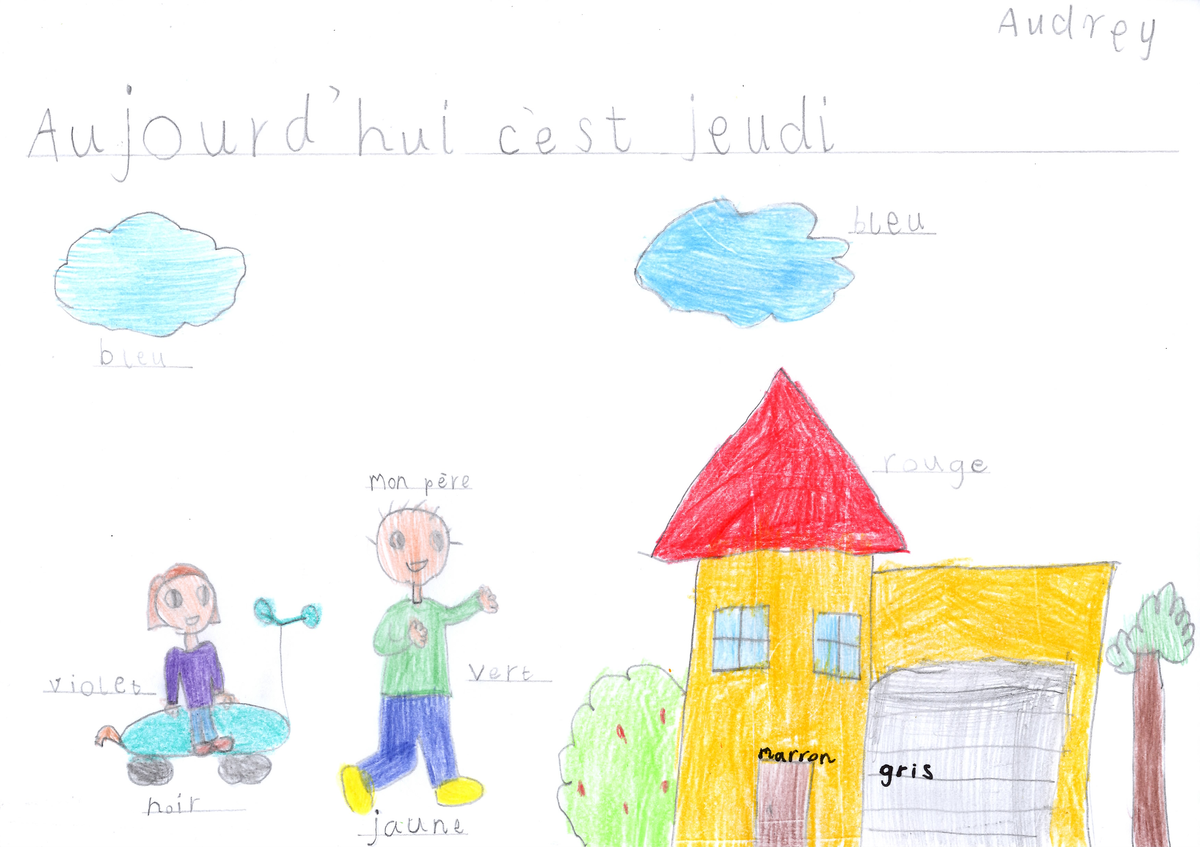 Audrey
Aujourd'hui c'èst jeudi
bleu
bleu
rouge
mon père
violet
vert
marron
gris
noir
jaune